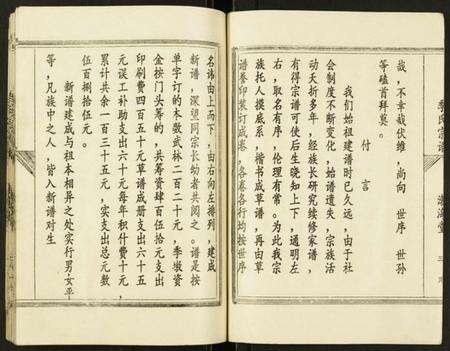 哉,不幸哉伏维,尚向 世序 世孙
等磕首拜奠。
付言
我们始祖建谱时已久远,由于社
会制度不断变化,始谱遗失,宗族活
动夭折多年,经族长研究续修家谱,
有得宗谱可使后生晚知上下,通明左
右,取名有序,伦理有常。为此我宗
族托人摸底系,楷书成草谱,再由草
谱卷印装订成卷,各卷各行均按世序
名讳由上而下,由右向左排列,建成
新谱,深望同宗长幼者共阅之。谱是按
单字订的本数武林二百二十元,季墩资
金按门头筹的,共筹资肆百伍拾元支出
印刷费四百五十元草谱成册支出六十五
元误工补助支出六十元每年积什费十元,
累计共余一百三十五元,实支出总元数
伍百捌拾伍元。
新谱建成与祖本相异之处实行男女平
等,凡族中之人,皆入新谱对生
李氏宗谱